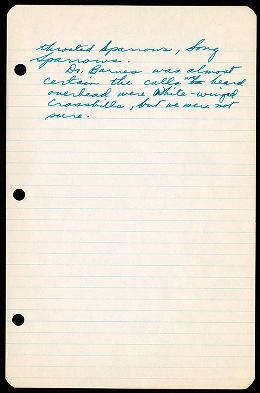 throated Sparrows, Song
Sparrows.
Dr. Barnes was almost
certain the calls we heard
overhead were White-winged
Crossbills, but we were not
sure.